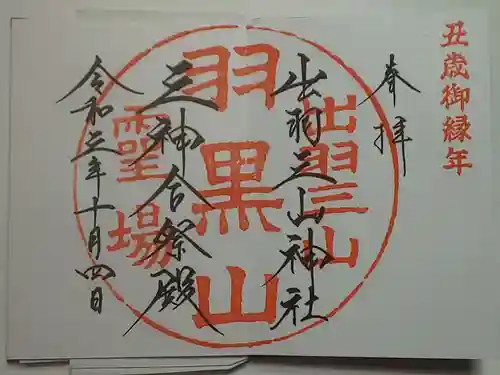 丑歳御縁年
奉拝
出羽三山神社
出羽三山
羽黒山
三神合祭殿
靈場
令和三年十月四日